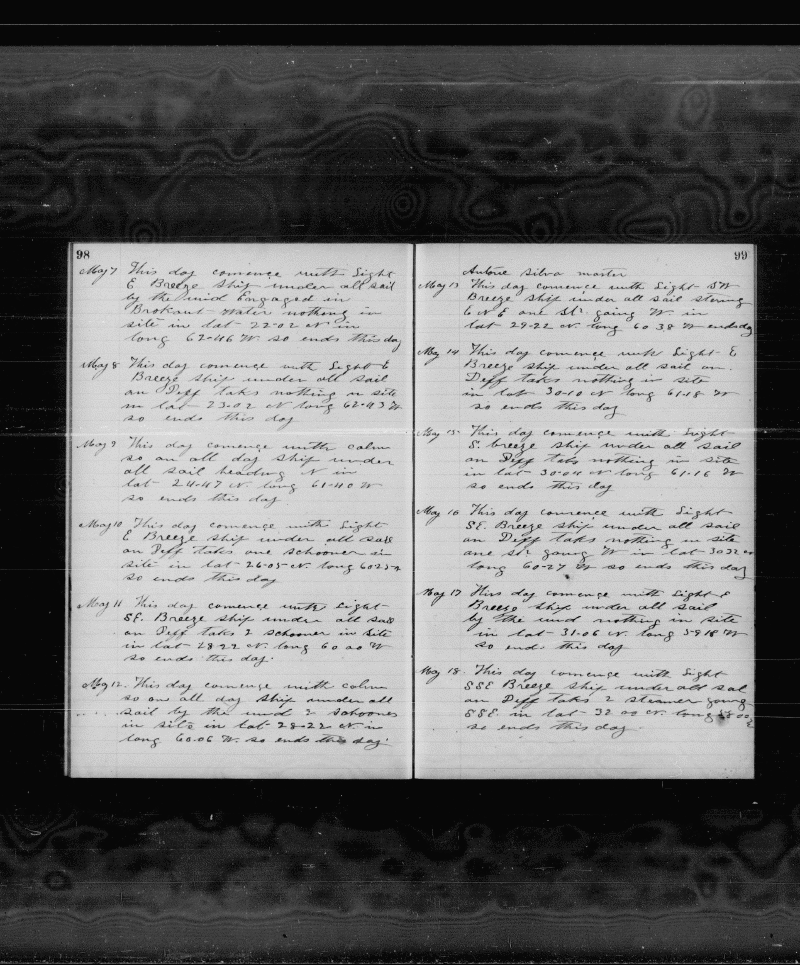 98
May 7 This day comence with Light
E Breeze Ship under all sail
by the wind Engaged in
Brokout water nothing in
site in lat 22-02 N in
long 62-46 W. so ends this day
May 8 This day comence with Light E
Breeze Ship under all sail
on Deff taks nothing in site
in lat 23-02 N long 62-43 W
so ends this day
May 9 This day comence with calm
so on all day Ship under
all sail heading N in
lat 24-47 N. long 61-40 W
so ends this day
May 10 This day comence with Light
E Breeze Ship under all sail
on Deff taks one schooner in
site in lat 26-05 N. long 60 25
so ends this day
May 11 This day comence with Light
SE. Breeze Ship under all sail
on Deff taks 2 schooner in site
in lat 28-22 N. long 60 00 W
so ends this day.
May 12. This day comence with calm
so on all day Ship under all
sail by the wind 2 schooner
in site in lat 28-22 N. in
long 60.06 W. so ends this day.
99
Antone Silva master
May 13 This day comence with Light SW
Breeze Ship under all sail stering
E N E one Str. going W. in
lat 29-22 N. long 60 38 W ends day
May 14. This day comence with Light E
Breeze Ship under all sail on.
Deff taks nothing in site
in lat 30-10 N long 61-18 W
so ends this day
May 15. This day comence with Light
S. breeze Ship under all sail
on Deff taks nothing in site
in lat 30-04 N long 61-16 W
so ends this day
May 16 This day comence with Light
SE. Breeze Ship under all sail
on Deff taks nothing in site
one Str going W in lat 30 32
long 60-27 W so ends this day
May 17 This day comence with Light E
Breeze Ship under all sail
by the wind nothing in site
in lat 31-06 N. long 59 18 W
so ends this day
May 18. This day comence with Light
SSE Breeze Ship under all sail
on Deff taks 2 steamer going
SSE. in lat 32 00 N. long 58 00
so ends this day